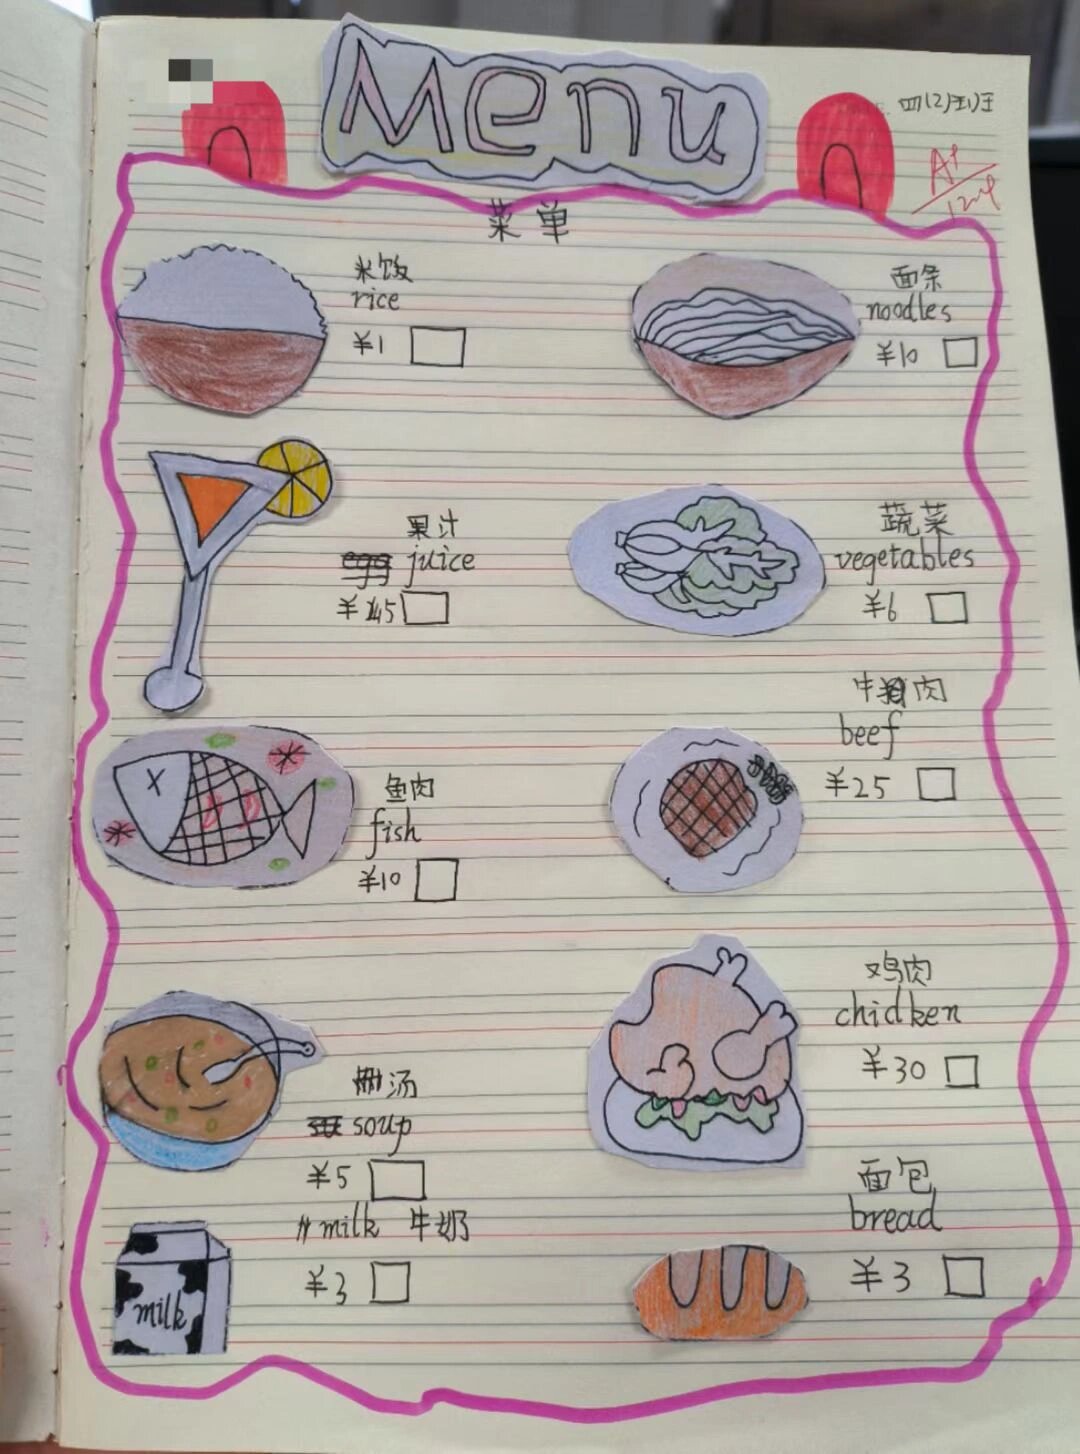 Menu
四(2)班
A+
菜单
米饭
rice
¥1
面条
noodles
¥10
果汁
juice
¥45
蔬菜
vegetables
¥6
鱼肉
fish
¥10
牛肉
beef
¥25
汤
soup
¥5
鸡肉
chidken
¥30
milk 牛奶
¥3
milk
面包
bread
¥3